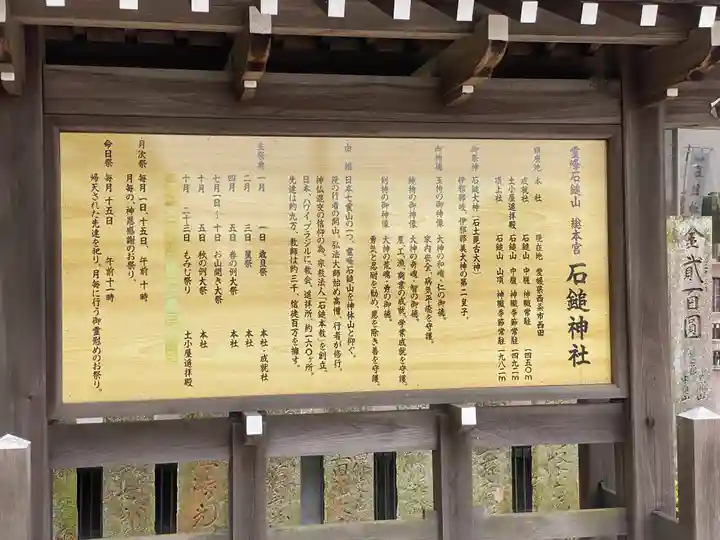 霊峰石鎚山 総本宮 石鎚神社
鎮座地 本社 現在地 愛媛県西条市西田
成就社 石鎚山 中腹 神職季節常駐 (一四五〇m)
土小屋遥拝殿 石鎚山 中腹 神職季節常駐 (一四九二m)
頂上社 石鎚山 山頂 神職季節常駐 (一九八二m)
御祭神 石鎚大神(石土毘古大神)
伊邪那岐、伊邪那美大神の第二皇子。
家内安全、病気平癒を守護。
御神像 玉持の御神像 大神の和魂・仁の御徳。
鏡持の御神像 大神の奇魂・智の御徳。
農、工、漁、商業の成就、学業成就を守護。
剣持の御神像 大神の荒魂・勇の御徳。
勇気と忍耐を勧め、悪を除き善を守護。
由緒 日本七霊山の一つ、霊峰石鎚山を神体山と仰ぐ。
役の行者の開山。弘法大師始め高僧、行者が修行。
神仏混交の信仰の為、宗教法人「石鎚本教」を創立。
日本、ハワイ、ブラジルに、教会、遥拝所、約一六〇ヶ所。
先達は約九万、教師は約三千、信徒百万を擁す。
主祭典 一月 一日 歳旦祭 本社・成就社
二月 三日 星祭 本社
四月 五日 春の例大祭 本社
七月一日~十日 お山開き大祭
十月 五日 秋の例大祭 本社
十月 二十三日 もみじ祭り 土小屋遥拝殿
月次祭 毎月一日、十五日、午前十時
月毎の、神恩感謝のお祭り。
今日祭 毎月十五日 午前十一時
帰天された先達を祀り、月毎に行う御霊慰めのお祭り。
金貳百圓